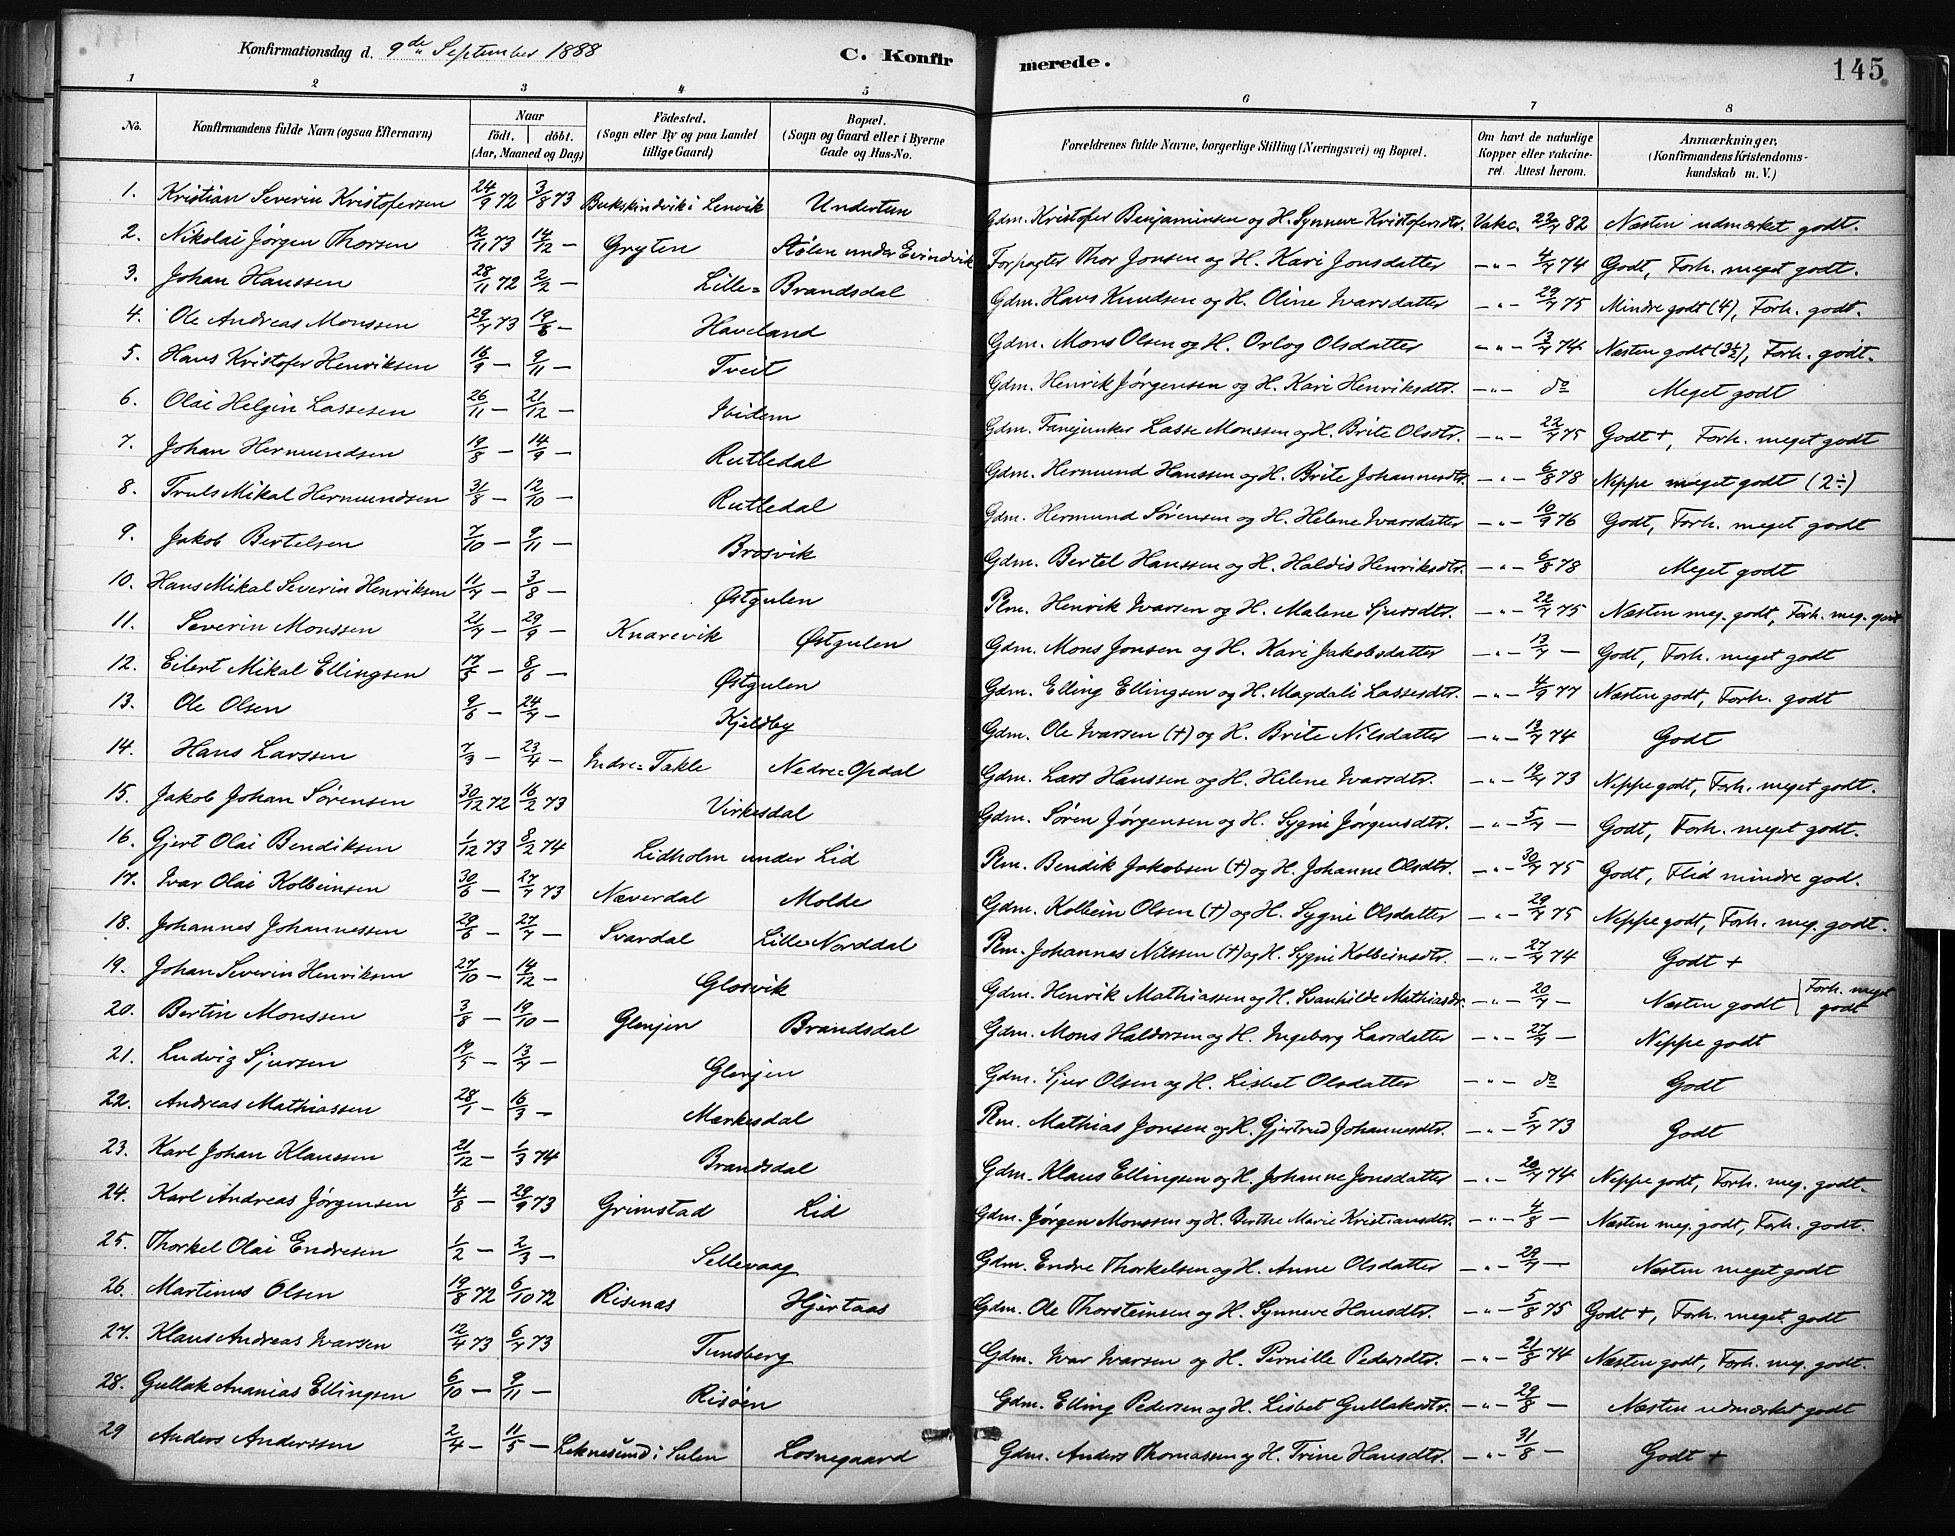 Konfirmationsdag d. 9de September 1888 C. Konfirmerede. 145
1 2 3 4 5 6 7 8
No. Konfirmandens fulde Navn (ogsaa Efternavn) Naar födt. döbt. (Aar, Maaned og Dag) Födested. (Sogn eller By og paa Landet lillige Gaard) Bopæl. (Sogn og Gaard eller i Byerne Gade og Hus-No. Forældrenes fulde Navne, borgerlige Stilling (Næringsvei) og Bopæl. Om havt de naturlige Kopper eller vakcineret. Attest herom. Anmærkninger, (Konfirmandens Kristendomskundskab m. V.)
1. Kristian Severin Kristofersen 24/9 72 3/8 73 Bukskindvik i Lenvik Undertun Gdm. Kristofer Benjaminsen og H. Synneve Kristofersdtr. Vakc. 22/7 82 Næsten udmærket godt.
2. Nikolai Jørgen Thorsen 12/11 73 14/12 — Gryten Stølen under Evindvik Forpagter Thor Jonsen og H. Kari Jonsdatter — " — 4/7 74 Godt, Forh. meget godt.
3. Johan Hanssen 28/11 72 2/2 — Lille= Brandsdal Gdm. Hans Knudsen og H. Oline Ivarsdatter — " — 29/7 75 Mindre godt (4), Forh. godt.
4. Ole Andreas Monssen 29/7 73 19/6 — Haveland Gdm. Mons Olsen og H. Orlog Olsdatter — " — 13/7 74 Næsten godt (3½), Forh. godt.
5. Hans Kristofer Henriksen 16/9 — 9/11 — Tveit Gdm. Henrik Jørgensen og H. Kari Henriksdtr. — " — do Meget godt
6. Olai Helgin Lassesen 26/11 — 21/12 — Ibidem Gdm. Fanejunker Lasse Monssen og H. Brite Olsdtr. — " — 22/7 75 Godt +, Forh. meget godt
7. Johan Hermundsen 19/8 — 14/9 — Rutledal Gdm. Hermund Hanssen og H. Brite Johannesdtr. — " — 6/8 78 Neppe meget godt (2÷)
8. Truls Mikal Hermundsen 31/8 — 12/10 — Rutledal Gdm. Hermund Sørensen og H. Helene Ivarsdatter — " — 10/9 76 Godt, Forh. meget godt
9. Jakob Bertelsen 7/10 — 9/11 — Brosvik Gdm. Bertel Hanssen og H. Haldis Henriksdtr. — " — 6/8 78 Meget godt
10. Hans Mikal Severin Henriksen 11/7 — 3/8 — Østgulen Pm. Henrik Ivarsen og H. Malene Sjursdtr. — " — 22/7 75 Næsten meg. godt, Forh. meg. godt
11. Severin Monssen 21/7 — 29/9 — Knarevik Østgulen Gdm. Mons Jonsen og H. Kari Jakobsdatter — " — 13/7 — Godt, Forh. meget godt
12. Eilert Mikal Ellingsen 17/5 — 8/6 — Østgulen Gdm. Elling Ellingsen og H. Magdali Lassesdtr. — " — 4/9 77 Næsten godt, Forh. godt
13. Ole Olsen 9/6 — 24/7 — Kjeldby Gdm. Ole Ivarsen (+) og H. Brite Nilsdatter — " — 13/7 74 Godt
14. Hans Larssen 7/3 — 23/4 — Indre= Takle Nedre= Opdal Gdm. Lars Hanssen og H. Helene Ivarsdtr. — " — 19/7 73 Neppe godt, Forh. meget godt.
15. Jakob Johan Sørensen 30/12 72 16/2 73 Virkesdal Gdm. Søren Jørgensen og H. Sygni Jørgensdtr. — " — 5/7 — Godt, Forh. meget godt.
16. Gjert Olai Bendiksen 1/12 73 8/2 74 Lidholm under Lid Pm. Bendik Jakobsen (+) og H. Johanne Olsdtr. — " — 30/7 75 Godt, Flid mindre god.
17. Ivar Olai Kolbeinsen 30/6 — 27/7 73 Næverdal Molde Gdm. Kolbein Olsen (+) og H. Sygni Olsdatter — " — 29/7 75 Neppe godt, Forh. meg. godt.
18. Johannes Johannessen 29/6 — 27/7 — Svardal Lille= Norddal Pm. Johannes Nilssen (+) og H. Sygni Kolbeinsdtr. — " — 27/7 74 Godt +
19. Johan Severin Henriksen 27/10 — 14/12 — Glosvik Gdm. Henrik Mathiassen og H. Svanhilde Mathiasdtr. — " — 20/7 — Næsten godt Forh. meget godt
20. Bertin Monssen 3/8 — 19/10 — Glenjen Brandsdal Gdm. Mons Haldorsen og H. Ingeborg Larsdatter — " — 27/7 — Neppe godt
21. Ludvig Sjursen 19/5 — 13/7 — Glenjen Gdm. Sjur Olsen og H. Lisbet Olsdatter — " — do Godt
22. Andreas Mathiassen 28/1 — 16/3 — Mærkesdal Pm. Mathias Jonsen og H. Gjertrud Johannesdtr. — " — 5/7 73 Godt
23. Karl Johan Klaussen 21/12 — 1/3 74 Brandsdal Gdm. Klaus Ellingsen og H. Johanne Jonsdatter — " — 20/7 74 Neppe godt, Forh. meg. godt.
24. Karl Andreas Jørgensen 4/8 — 29/9 73 Grimstad Lid Gdm. Jørgen Monssen og H. Berthe Marie Kristiansdtr. — " — 4/8 — Næsten meg. godt, Forh. godt.
25. Thorkel Olai Endresen 1/2 — 2/3 — Sellevaag Gdm. Endre Thorkelsen og H. Anne Olsdatter — " — 29/7 — Næsten meget godt
26. Martinus Olsen 19/8 72 6/10 72 Risenæs Hjertaas Gdm. Ole Thorsteinsen og H. Synneve Hansdtr. — " — 5/8 75 Godt +, Forh. meget godt
27. Klaus Andreas Ivarsen 12/4 73 6/7 73 Tunsberg Gdm. Ivar Ivarsen og H. Pernille Pedersdtr. — " — 21/8 74 Næsten godt, Forh. meg. godt.
28. Gullak Ananias Ellingsen 6/10 — 9/11 — Risøen Gdm. Elling Pedersen og H. Lisbet Gullaksdtr. — " — 29/8 — Næsten udmærket godt
29 Anders Anderssen 2/4 — 11/5 — Leknesund i Sulen Losnegaard Gdm. Anders Thomassen og H. Trine Hansdtr. — " — 31/8 — Godt +